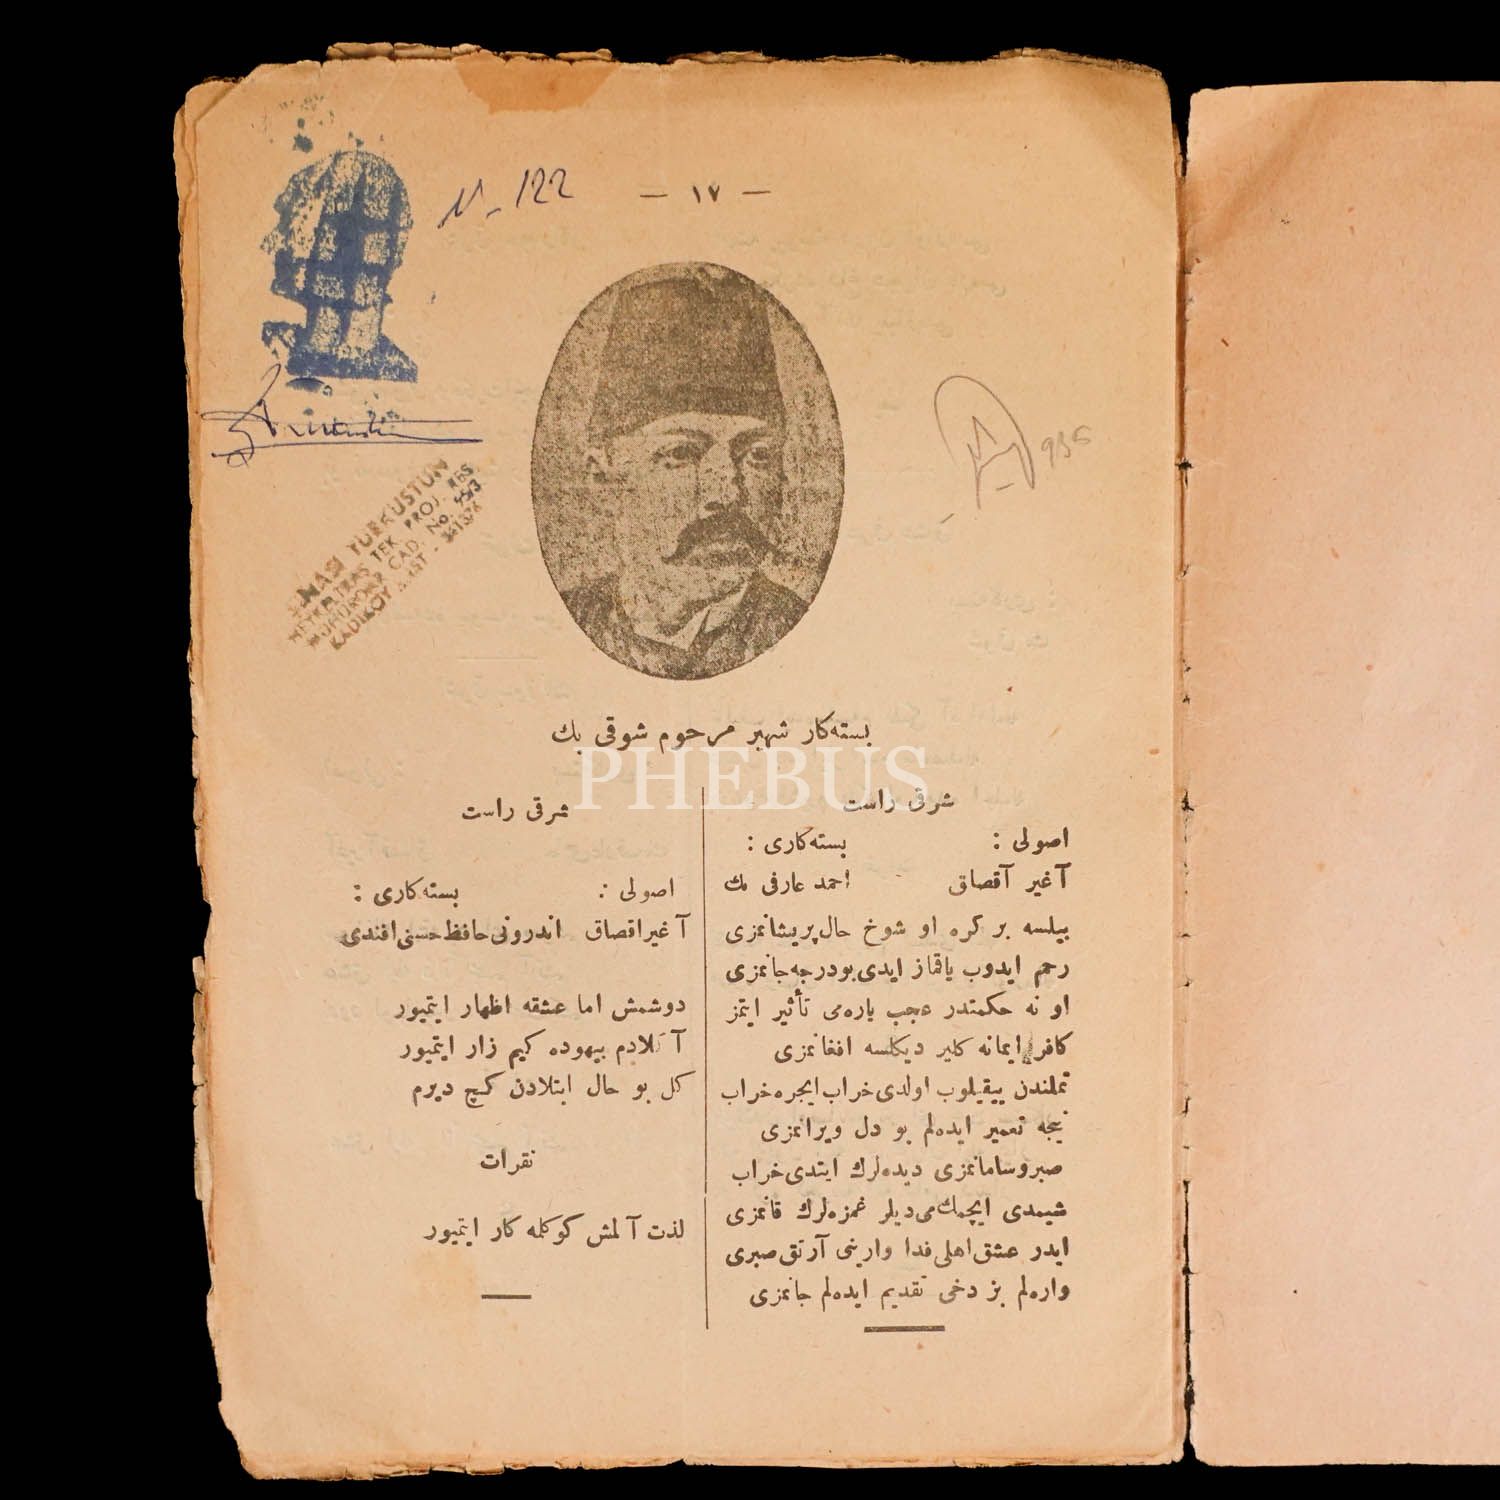 N-122
— ١٧ —
935
TÜRKÜSTÜN
TEK PROJ. RES.
CAD. No. 45/3
KADIKÖY - İST -
بسته‌كار شهیر مرحوم شوقی بك
PHEBUS
شرقی راست
اصولی : بسته‌كاری :
آغیر آقصاق احمد عارفی بك
بیلسه بر كره او شوخ حال پریشانمزی
رحم ایدوب یاقماز ایدی بو درجه جانمزی
او نه حكمتدر عجب یاره‌می تأثیر ایتمز
كافر ایمانه كلیر دیكلسه افغانمزی
تملندن ییقیلوب اولدی خراب ایچره خراب
نیجه تعمیر ایده‌لم بو دل ویرانمزی
صبر و سامانمزی دیده‌لرك ایتدی خراب
شیمدی ایچمك‌می دیلر غمزه‌لرك قانمزی
ایدر عشق اهلی فدا وارینی آرتق صبری
واره‌لم بز دخی تقدیم ایده‌لم جانمزی
شرقی راست
اصولی : بسته‌كاری :
آغیر اقصاق اندرونی حافظ حسنی افندی
دوشمش اما عشقه اظهار ایتمیور
آكلادم بیهوده كیم زار ایتمیور
كل بو حال ابتلادن كچ دیرم
نقرات
لذت آلمش كوكلمه كار ایتمیور